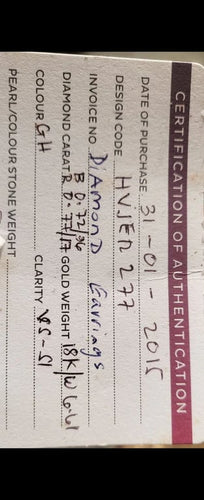 CERTIFICATION OF AUTHENTICATION
DATE OF PURCHASE 31-01-2015
DESIGN CODE HVJER 277
INVOICE NO. Diamond Earrings
B D: 72/.36
DIAMOND CARAT R D: 77/ GOLD WEIGHT 18K/W
COLOUR GH CLARITY VS-SI
PEARL/COLOUR STONE WEIGHT